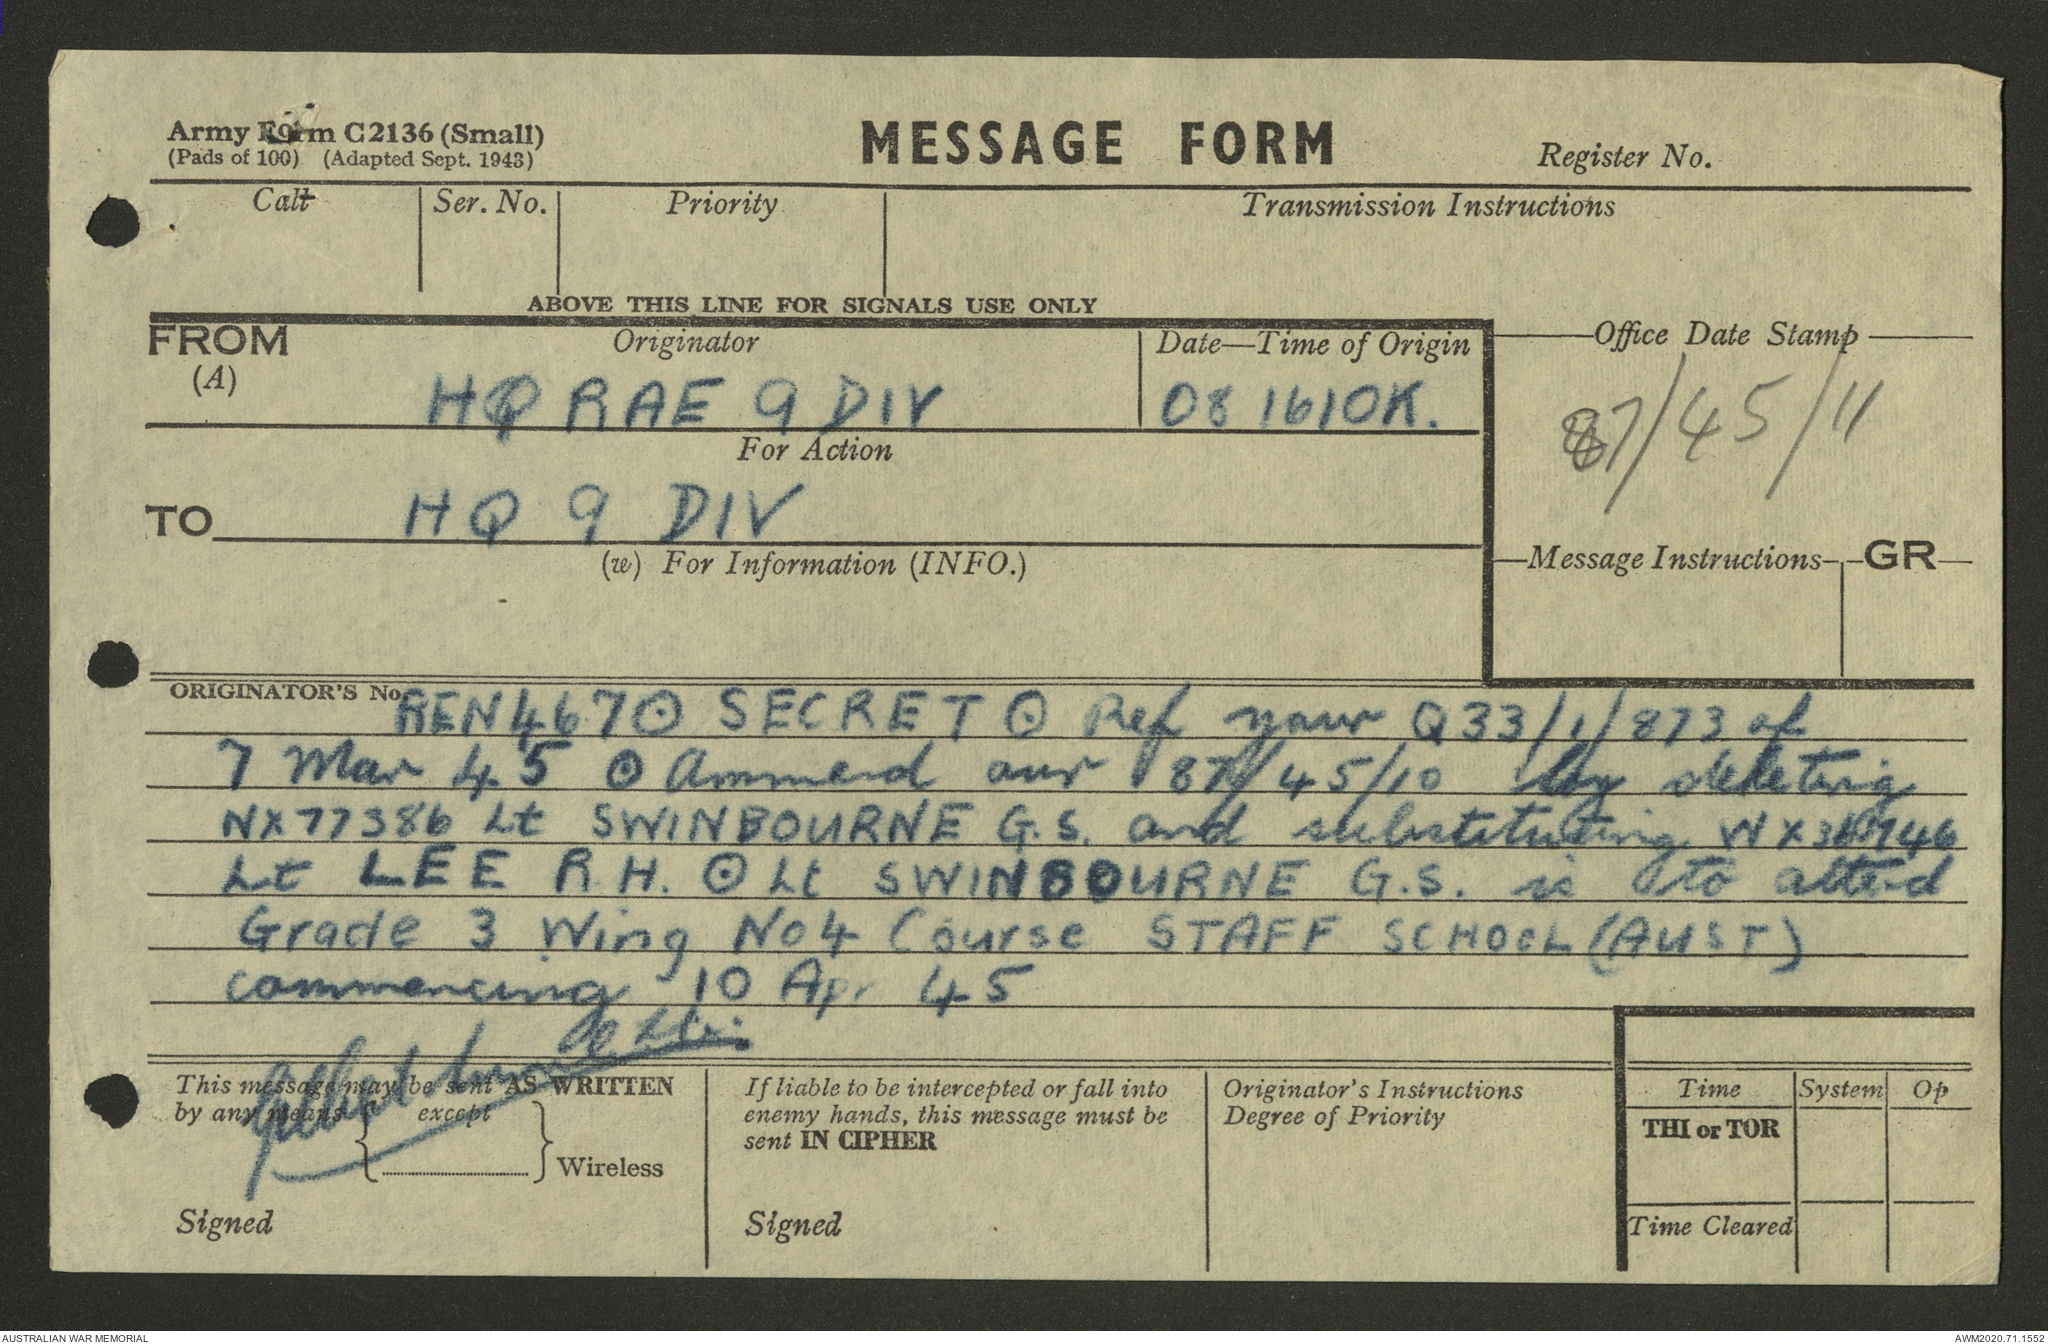 Army Form C2136 (Small)
(Pads of 100) (Adapted Sept. 1943)
MESSAGE FORM
Register No.
Call
Ser. No.
Priority
Transmission Instructions
ABOVE THIS LINE FOR SIGNALS USE ONLY
FROM
(A)
Originator
HQ RAE 9 DIV
Date—Time of Origin
081610K.
Office Date Stamp
87/45/11
For Action
TO
HQ 9 DIV
(w) For Information (INFO.)
Message Instructions
GR
ORIGINATOR'S No.
REN467 ⊙ SECRET ⊙ Ref your Q33/1/873 of
7 Mar 45 ⊙ Ammend our 87/45/10 by deleting
NX77386 Lt SWINBOURNE G.S. and substituting
Lt LEE R.H. ⊙ Lt SWINBOURNE G.S. is to attend
Grade 3 Wing No4 Course STAFF SCHOOL (AUST)
commencing 10 Apr 45
This message may be sent AS WRITTEN
by any means { except } Wireless
Signed
If liable to be intercepted or fall into
enemy hands, this message must be
sent IN CIPHER
Signed
Originator's Instructions
Degree of Priority
Time
System
Op
THI or TOR
Time Cleared
AUSTRALIAN WAR MEMORIAL
AWM2020.71.1552